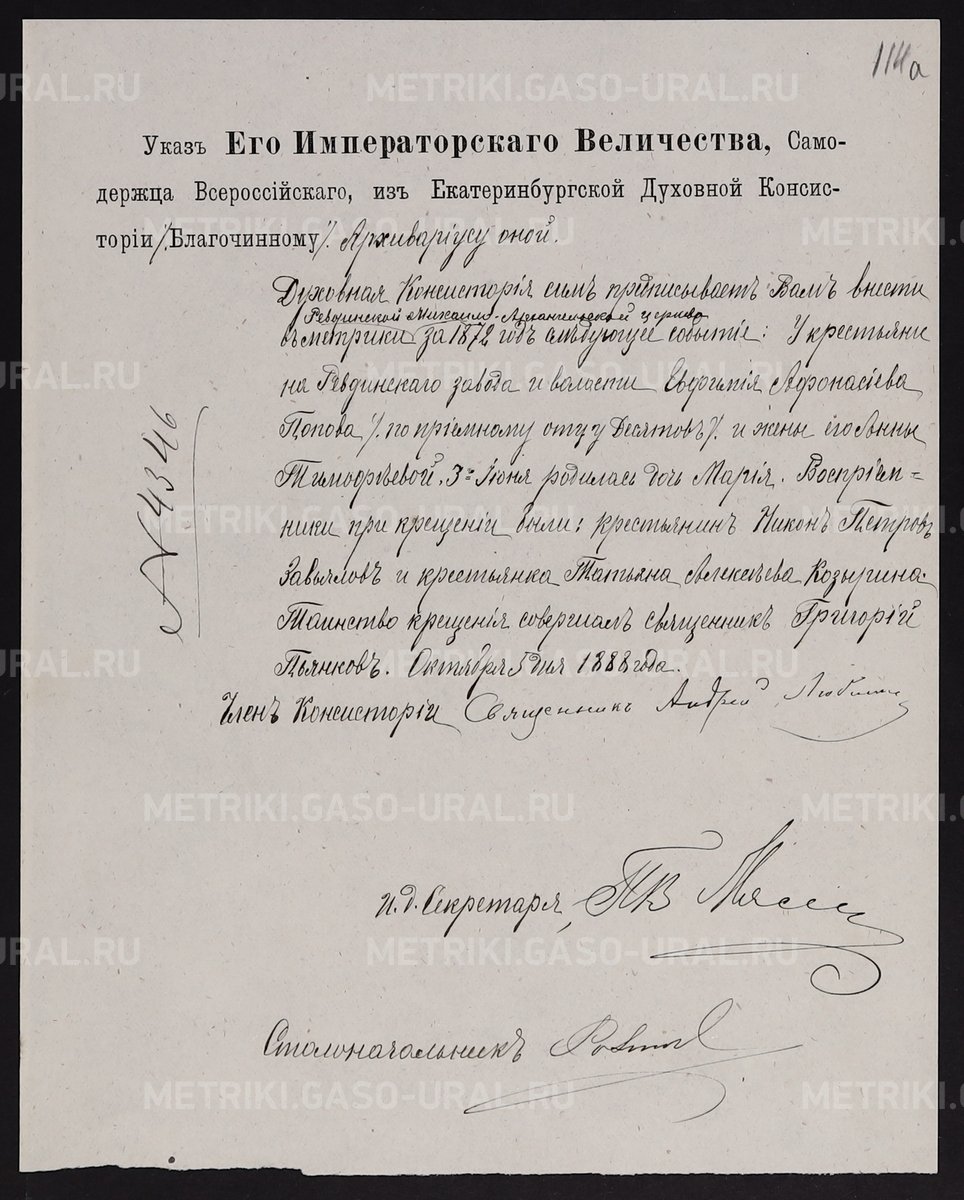 114а
Указъ Его Императорскаго Величества, Само-
держца Всероссійскаго, изъ Екатеринбургской Духовной Консис-
торіи /.Благочинному/. Архиваріусу оной.
Духовная Консисторія симъ предписываетъ Вамъ внести
Ревдинской Михаило-Архангельской церкви
въ метрики за 1872 годъ слѣдующее событіе: У крестьяни
на Ревдинскаго завода и волости Евфимія Афонасіева
Попова /. по пріемному отцу Десятовъ/. и жены его Анны
Тимофѣевой, 3го Іюня родилась дочь Марія. Воспріем=
ники при крещеніи были: крестьянинъ Никонъ Петровъ
Завьяловъ и крестьянка Татьяна Алексѣева Козырина.
Таинство крещенія совершалъ священникъ Григорій
Пьянковъ. Октября 5 дня 1888 года.
№ 4346
Членъ Консисторіи Священникъ Андрей
и.д. Секретаря, ПВ
Столоначальникъ
METRIKI.GASO-URAL.RU